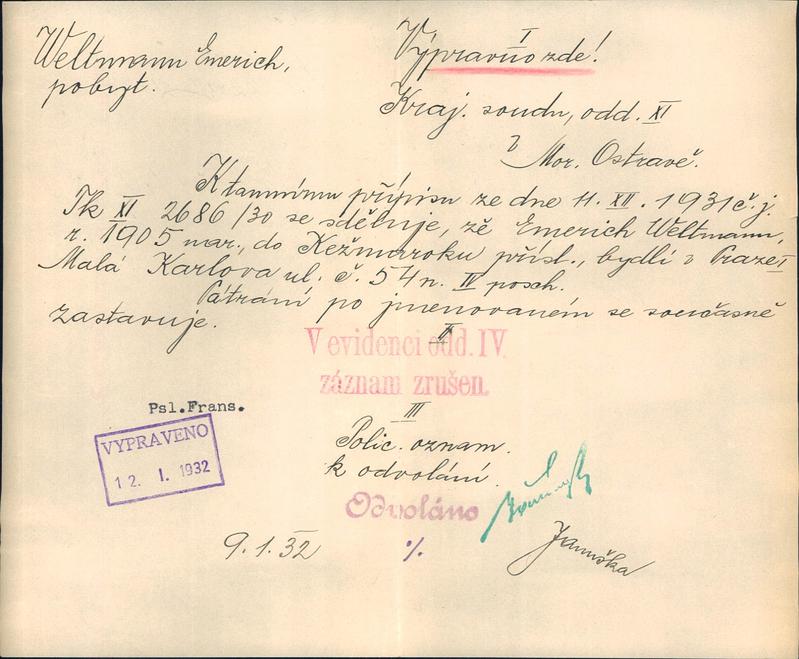 Weltmann Emerich,
pobyt.
I
Výpravno zde!
Kraj. soudu, odd. XI
v Mor. Ostravě.
K tamnímu přípisu ze dne 11. XII. 1931 č. j.
Tk XI 2686/30 se sděluje, že Emerich Weltmann,
r. 1905 nar., do Kežmaroku přísl., bydlí v Praze I
Malá Karlova ul. č. 54 n. IV posch.
Pátrání po jmenovaném se současně
zastavuje.
II
V evidenci odd. IV.
záznam zrušen.
Psl.Frans.
VYPRAVENO
12. I. 1932
III
Polic. oznam.
k odvolání.
Odvoláno
9.1.32
%
Januška